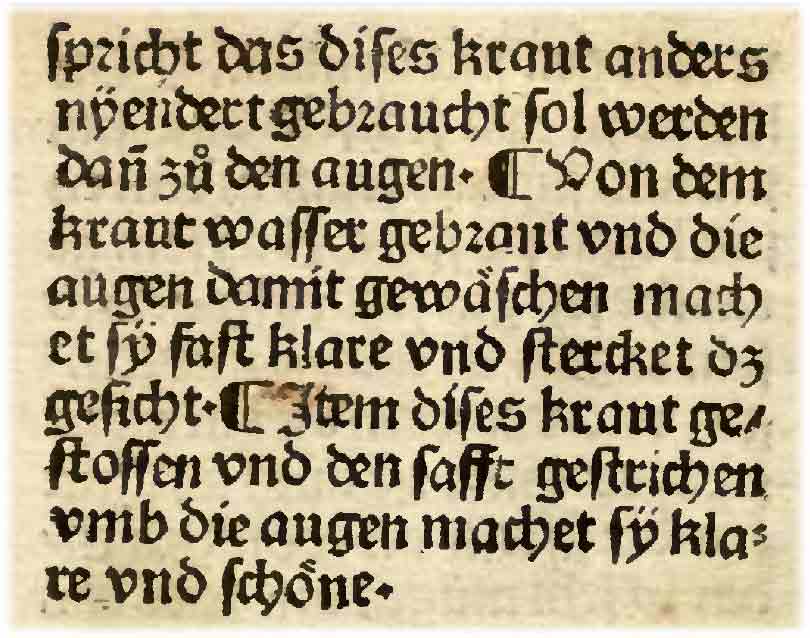 spricht das dises kraut anders
nÿendert gebraucht sol werden
dan̄ zů den augen. ¶ Von dem
kraut wasser gebrant vnd die
augen damit gewaͤschen mach
et sÿ fast klare vnd stercket dz
gesicht. ¶ Item dises kraut ge/
stossen vnd den safft gestrichen
vmb die augen machet sÿ kla⸗
re vnd schoͤne.